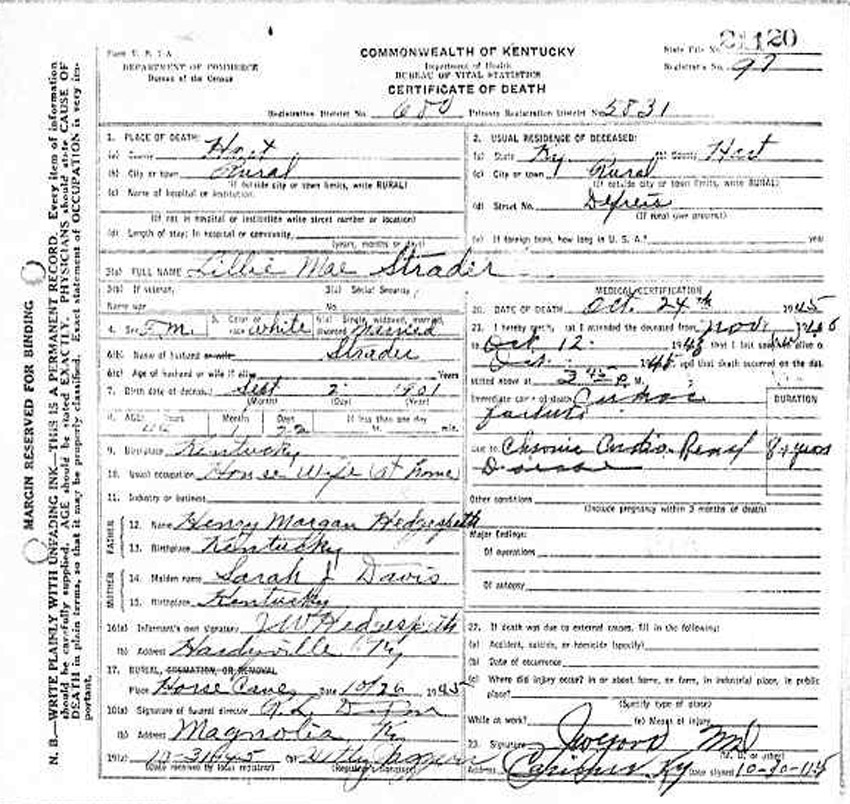 Form V. S. 1-A
DEPARTMENT OF COMMERCE
Bureau of the Census
COMMONWEALTH OF KENTUCKY
Department of Health
BUREAU OF VITAL STATISTICS
CERTIFICATE OF DEATH
State File No. 21120
Registrar's No. 97
Registration District No. 680 Primary Registration District No. 5831
MARGIN RESERVED FOR BINDING
N. B.—WRITE PLAINLY WITH UNFADING INK—THIS IS A PERMANENT RECORD. Every item of information
should be carefully supplied. AGE should be stated EXACTLY. PHYSICIANS should state CAUSE OF
DEATH in plain terms, so that it may be properly classified. Exact statement of OCCUPATION is very im-
portant.
1. PLACE OF DEATH:
(a) County Hart
(b) City or town Rural
(If outside city or town limits, write RURAL)
(c) Name of hospital or institution:
(If not in hospital or institution write street number or location)
(d) Length of stay: In hospital or community
(years, months or days)
2. USUAL RESIDENCE OF DECEASED:
(a) State Ky (b) County Hart
(c) City or town Rural
(If outside city or town limits, write RURAL)
(d) Street No. Defries
(If rural give precinct)
(e) If foreign born, how long in U. S. A.? years
3(a) FULL NAME Lillie Mae Strader
3(b) If veteran, 3(c) Social Security
Name war No.
4. Sex F.M. 5. Color or race white 6(a) Single, widowed, married, divorced Married
6(b) Name of husband or wife Strader
6(c) Age of husband or wife if alive Years
7. Birth date of deceased Sept 2 1901
(Month) (Day) (Year)
8. AGE: Years Months Days If less than one day
44 1 22 hr. min.
9. Birthplace Kentucky
10. Usual occupation House Wife (at home
11. Industry or business
FATHER
12. Name Henry Morgan Hedgespeth
13. Birthplace Kentucky
MOTHER
14. Maiden name Sarah J Davis
15. Birthplace Kentucky
16(a) Informant's own signature J W Hedgespeth
(b) Address Hardyville Ky
17. BURIAL, CREMATION, OR REMOVAL
Place Horse Cave, Date 10/26 1945
18(a) Signature of funeral director
(b) Address Magnolia Ky
19(a) 10-31-45 (b)
(Date received by local registrar) (Registrar's Signature)
MEDICAL CERTIFICATION
20. DATE OF DEATH Oct. 24th 1945
21. I hereby certify, that I attended the deceased from Nov.
to Oct 12. that I last saw alive on
Oct. 1945, and that death occurred on the date
stated above at 2 45 P. M.
Immediate cause of death Cardiac
failure
DURATION
Due to Chronic Cardio-Renal 8+ years
Disease
Other conditions
(Include pregnancy within 3 months of death)
Major findings:
Of operations
Of autopsy
22. If death was due to external causes, fill in the following:
(a) Accident, suicide, or homicide (specify)
(b) Date of occurrence
(c) Where did injury occur? in or about home, or farm, in industrial place, in public
place?
(Specify type of place)
While at work? (e) Means of injury
23. Signature MD
(M. D. or other)
Address Ky Date signed 10-30-45